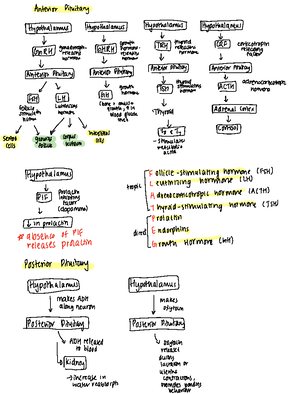 Anterior Pituitary
Hypothalamus
GnRH
gonadotropin-releasing hormone
Anterior Pituitary
FSH
follicle stimulating hormone
LH
luteinizing hormone
Sertoli cells
corpus luteum
Hypothalamus
GHRH
growth hormone-releasing hormone
Anterior Pituitary
GH
growth hormone
Hypothalamus
TRH
thyroid releasing hormone
Anterior Pituitary
TSH
thyroid stimulating hormone
Thyroid
T3 T4
Hypothalamus
CRF
corticotropin releasing factor
Anterior Pituitary
ACTH
adrenocorticotropic hormone
Adrenal Cortex
Cortisol
Hypothalamus
PIF
Prolactin inhibiting factor
(dopamine)
↓ in prolactin
* absence of PIF
releases prolactin
tropic
Follicle-stimulating hormone (FSH)
Luteinizing hormone (LH)
Adrenocorticotropic hormone (ACTH)
Thyroid-stimulating Hormone (TSH)
direct
Prolactin
Endorphins
Growth Hormone (GH)
Posterior Pituitary
Hypothalamus
makes ADH
along neuron
Posterior Pituitary
ADH released
to blood
Kidney
→ increase in
water reabsorp
Hypothalamus
makes
oxytocin
Posterior Pituitary
Oxytocin
released
during
lactation or
uterine
contractions,
promotes bonding
behaviour